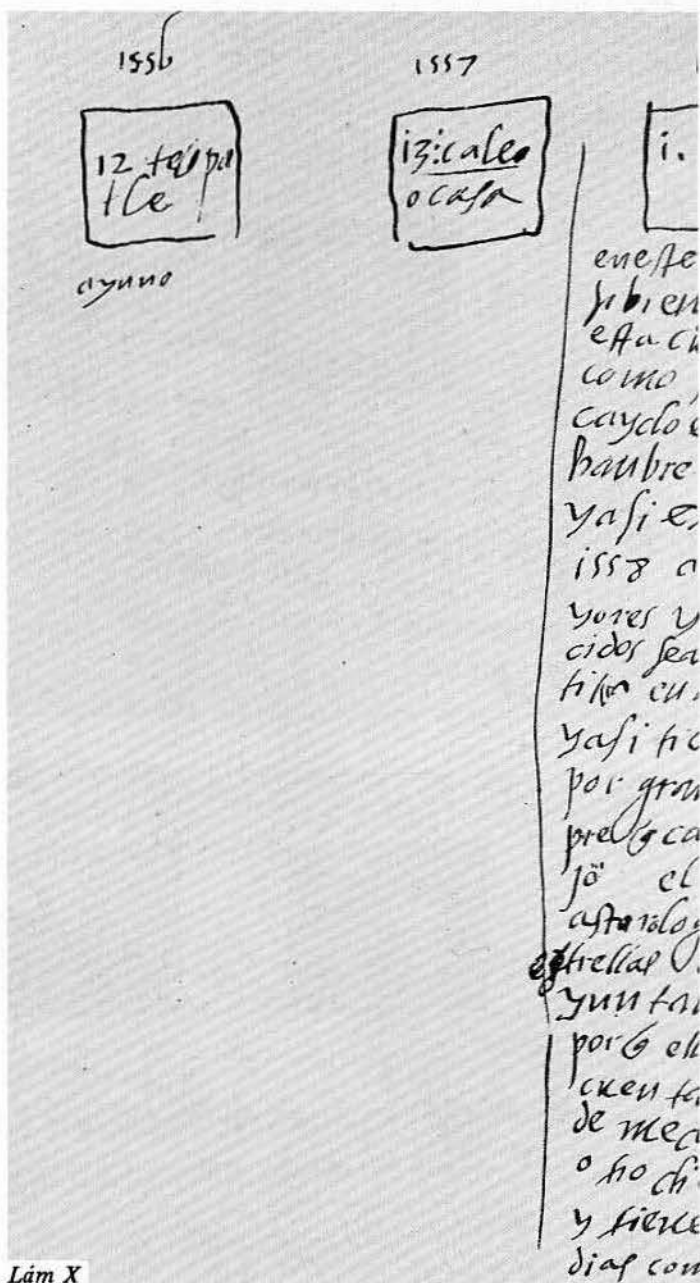 1556
12 tecpa
tle
ayuno
1557
i3: cale
o casa
i.
en este
sibien
esta ci
como
caydo
hanbre
yasi e
1558 a
yores y
cidos sea
en
yasi
por gran
pre q ca
jo el
astarolog
estrellas
yun tan
por q ell
cuen ta
de mec
o ho chi
y tiene
dias con
Lám X